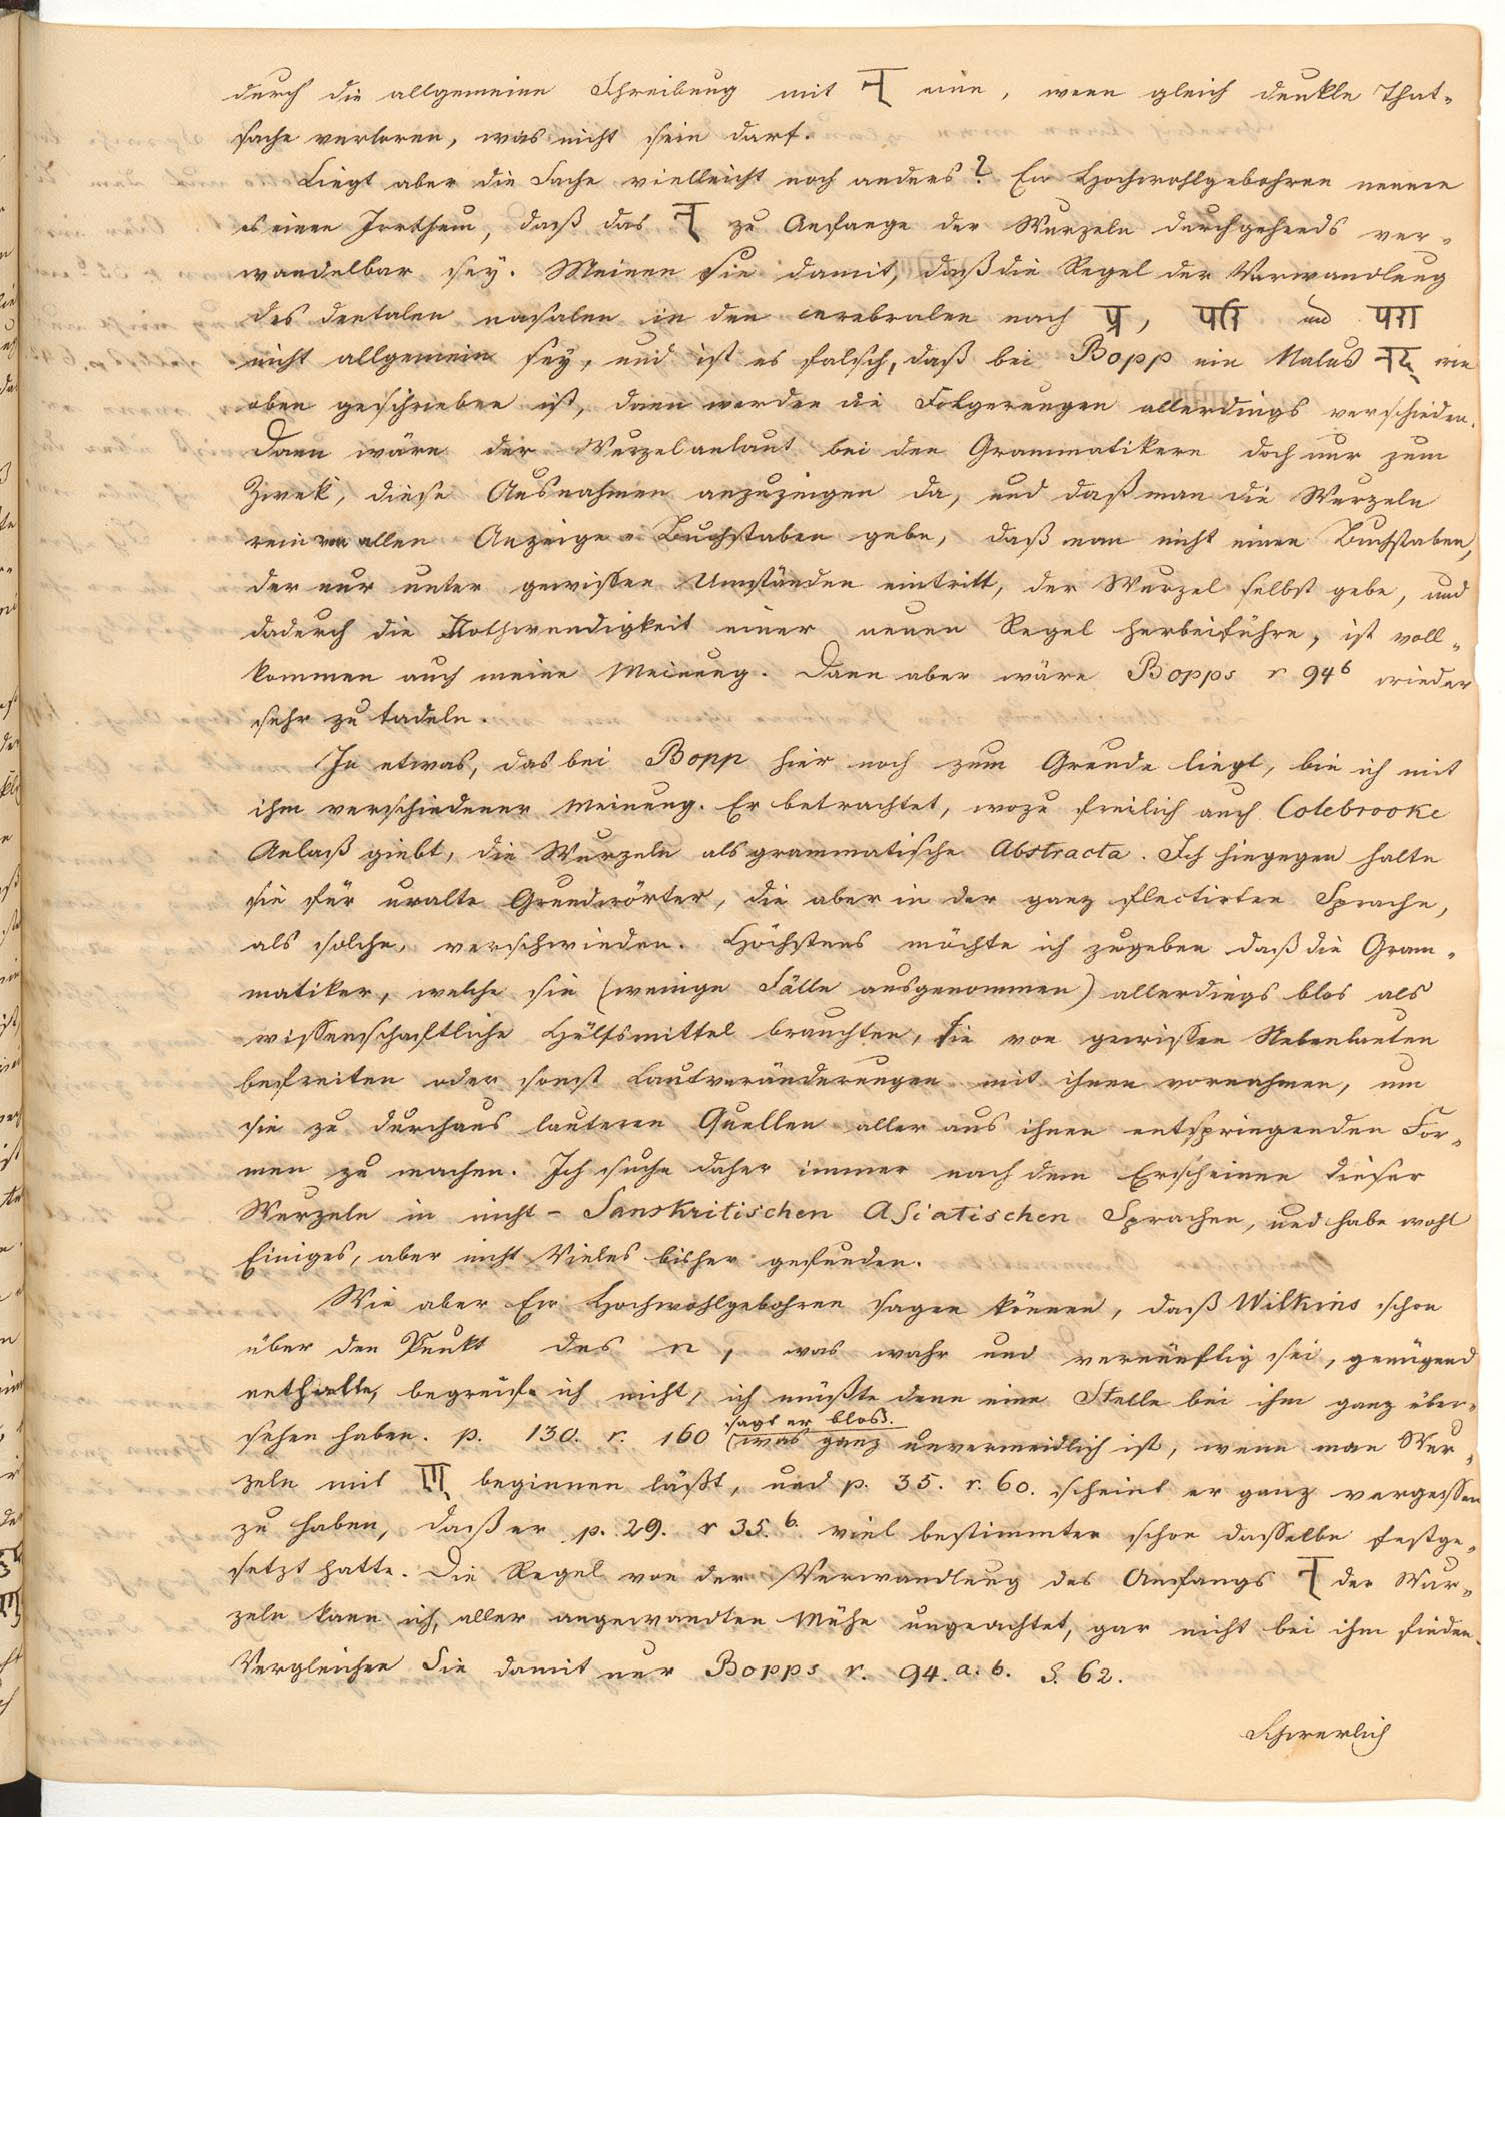 durch die allgemeine Schreibung mit न् eine, wenn gleich dunkle That-
sache verloren, was nicht sein darf.
Liegt aber die Sache vielleicht noch anders? Ew Hochwohlgebohren nennen
es einen Irrthum, daß das न् zu Anfange der Wurzeln durchgehends ver-
wandelbar sey. Meinen Sie damit, daß die Regel der Verwandlung
des dentalen nasalen in den cerebralen nach प्र, परि und परा
nicht allgemein sey, und ist es falsch, daß bei Bopp ein Nalus नद् wie
oben geschrieben ist, dann werden die Folgerungen allerdings verschieden.
Dann wäre der Wurzelanlaut bei den Grammatikern doch nur zum
Zwek, diese Ausnahmen anzuzeigen da, und daß man die Wurzeln
rein von allen Anzeige-Buchstaben gebe, daß man nicht einen Buchstaben,
der nur unter gewissen Umständen eintritt, der Wurzel selbst gebe, und
dadurch die Nothwendigkeit einer neuen Regel herbeiführe, ist voll-
kommen auch meine Meinung. Dann aber wäre Bopps r 94b wieder
sehr zu tadeln.
In etwas, das bei Bopp hier noch zum Grunde liegt, bin ich mit
ihm verschiedener Meinung. Er betrachtet, wozu freilich auch Colebrooke
Anlaß giebt, die Wurzeln als grammatische Abstracta. Ich hingegen halte
sie für uralte Grundwörter, die aber in der ganz flectirten Sprache,
als solche, verschwinden. Höchstens möchte ich zugeben daß die Gram-
matiker, welche sie (wenige Fälle ausgenommen) allerdings blos als
wissenschaftliche Hülfsmittel brauchten, sie von gewissen Nebenlauten
befreiten oder sonst Lautveränderungen mit ihnen vornahmen, um
sie zu durchaus lauteren Quellen aller aus ihnen entspringenden For-
men zu machen. Ich suche daher immer nach dem Erscheinen dieser
Wurzeln in nicht-Sanskritischen Asiatischen Sprachen, und habe wohl
Einiges, aber nicht Vieles bisher gefunden.
Wie aber Ew Hochwohlgebohren sagen können, daß Wilkins schon
über den Punkt des n, was wahr und vernünftig sei, genügend
enthalte, begreife ich nicht, ich müßte denn eine Stelle bei ihm ganz über-
sehen haben. p. 130. r. 160 sagt er blos. (was ganz unvermeidlich ist, wenn man Wur-
zeln mit ण् beginnen läßt, und p. 35. r. 60. scheint er ganz vergessen
zu haben, daß er p. 29. r 35.b. viel bestimmter schon dasselbe festge-
setzt hatte. Die Regel von der Verwandlung des Anfangs न् der Wur-
zeln kann ich, aller angewandten Mühe ungeachtet, gar nicht bei ihm finden.
Vergleichen Sie damit nur Bopps r. 94. a. b. S. 62.
Schwerlich